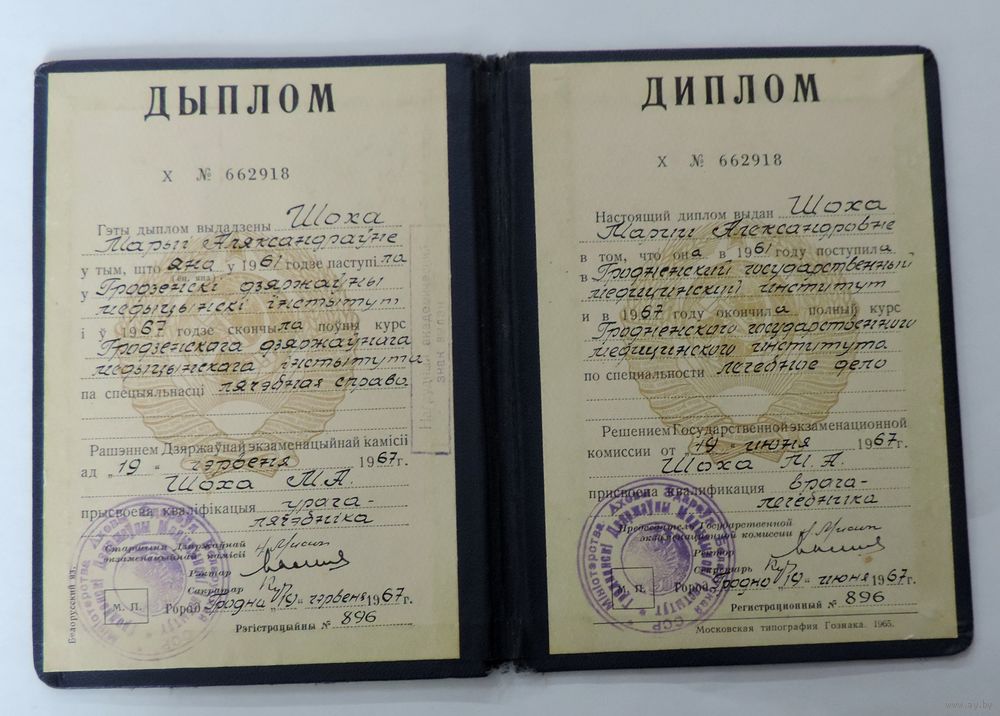 ДЫПЛОМ
X № 662918
Гэты дыплом выдадзены Шоха
Марыі Аляксандраўне
у тым, што яна у 1961 годзе паступіла
(ён, яна)
у Гродзенскі дзяржаўны
медыцынскі інстытут
і ў 1967 годзе скончыла поўны курс
Гродзенскага дзяржаўнага
медыцынскага інстытута
па спецыяльнасці лячэбная справа
Рашэннем Дзяржаўнай экзаменацыйнай камісіі
ад „19“ чэрвеня 1967 г.
Шоха М.А.
прысвоена кваліфікацыя урача-
лячэбніка
Старшыня Дзяржаўнай
экзаменацыйнай камісіі
Рэктар
Сакратар
М. П.
Горад Гродна „19“ чэрвеня 1967 г.
Рэгістрацыйны № 896
Белорусский яз.
ДИПЛОМ
X № 662918
Настоящий диплом выдан Шоха
Марии Александровне
в том, что она в 1961 году поступила
в Гродненский государственный
медицинский институт
и в 1967 году окончила полный курс
Гродненского государственного
медицинского института
по специальности лечебное дело
Решением Государственной экзаменационной
комиссии от „19“ июня 1967 г.
Шоха М.А.
присвоена квалификация врача-
лечебника
Председатель Государственной
экзаменационной комиссии
Ректор
Секретарь
М. П.
Город Гродно „19“ июня 1967 г.
Регистрационный № 896
Московская типография Гознака. 1965.
www.ay.by